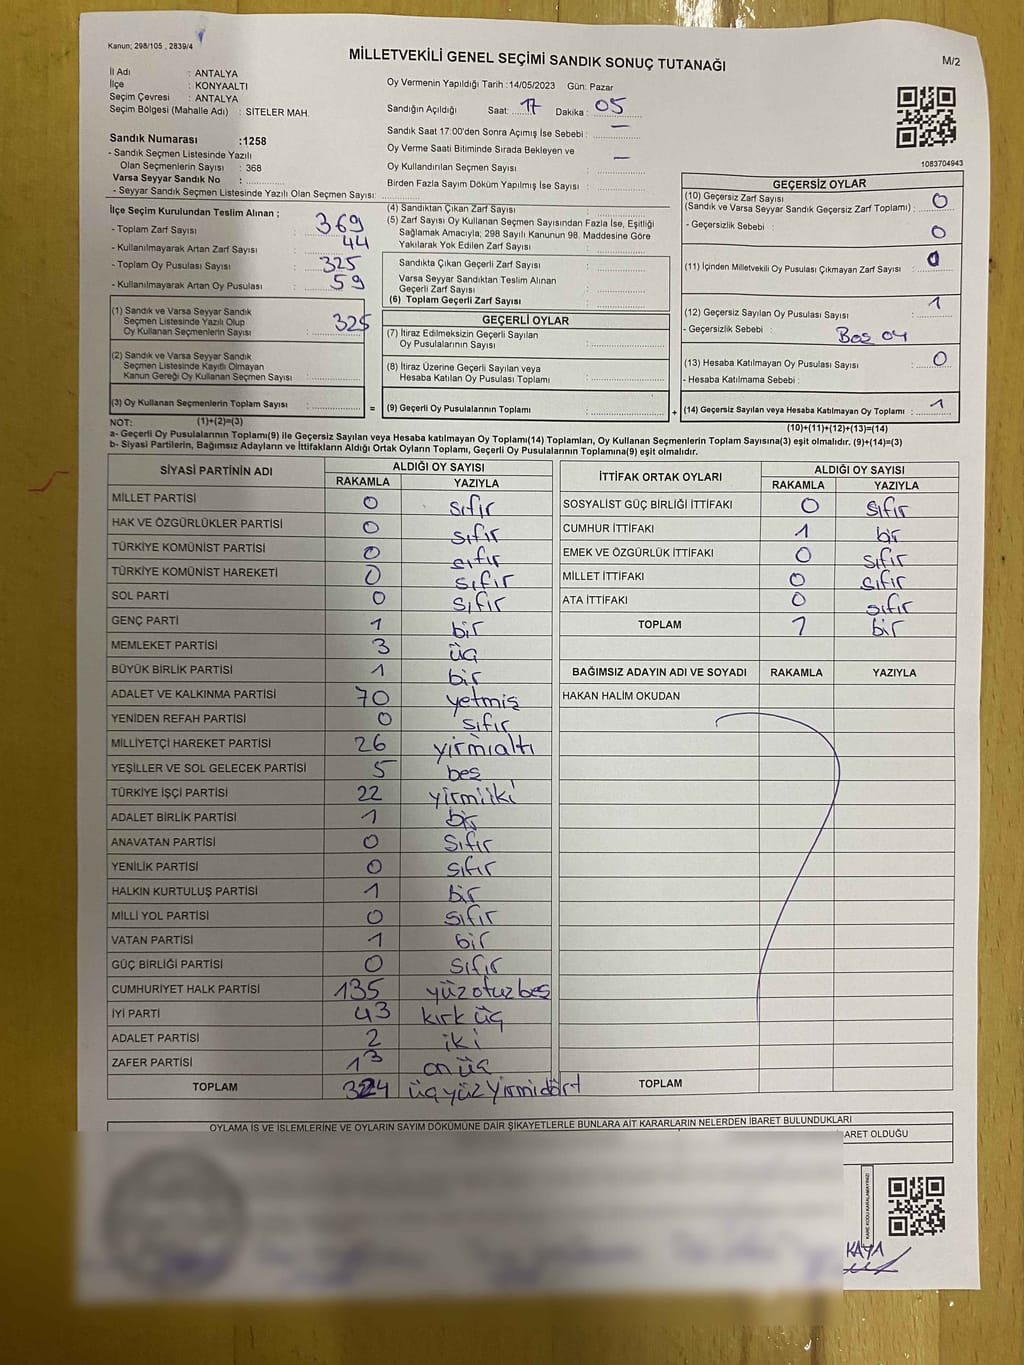 Kanun; 298/105 , 2839/4
MİLLETVEKİLİ GENEL SEÇİMİ SANDIK SONUÇ TUTANAĞI
M/2
İl Adı : ANTALYA
İlçe : KONYAALTI
Seçim Çevresi : ANTALYA
Seçim Bölgesi (Mahalle Adı) : SİTELER MAH.
Sandık Numarası :1258
- Sandık Seçmen Listesinde Yazılı
Olan Seçmenlerin Sayısı : 368
Varsa Seyyar Sandık No :
- Seyyar Sandık Seçmen Listesinde Yazılı Olan Seçmen Sayısı:
Oy Vermenin Yapıldığı Tarih :14/05/2023 Gün: Pazar
Sandığın Açıldığı Saat: 17 Dakika : 05
Sandık Saat 17:00'den Sonra Açımış İse Sebebi : —
Oy Verme Saati Bitiminde Sırada Bekleyen ve
Oy Kullandırılan Seçmen Sayısı : —
Birden Fazla Sayım Döküm Yapılmış İse Sayısı :
1083704943
İlçe Seçim Kurulundan Teslim Alınan ;
- Toplam Zarf Sayısı : 369
- Kullanılmayarak Artan Zarf Sayısı : 44
- Toplam Oy Pusulası Sayısı : 325
- Kullanılmayarak Artan Oy Pusulası : 59
(1) Sandık ve Varsa Seyyar Sandık
Seçmen Listesinde Yazılı Olup
Oy Kullanan Seçmenlerin Sayısı : 325
(2) Sandık ve Varsa Seyyar Sandık
Seçmen Listesinde Kayıtlı Olmayan
Kanun Gereği Oy Kullanan Seçmen Sayısı :
(3) Oy Kullanan Seçmenlerin Toplam Sayısı :
(1)+(2)=(3)
(4) Sandıktan Çıkan Zarf Sayısı :
(5) Zarf Sayısı Oy Kullanan Seçmen Sayısından Fazla İse, Eşitliği
Sağlamak Amacıyla; 298 Sayılı Kanunun 98. Maddesine Göre
Yakılarak Yok Edilen Zarf Sayısı :
Sandıkta Çıkan Geçerli Zarf Sayısı :
Varsa Seyyar Sandıktan Teslim Alınan
Geçerli Zarf Sayısı :
(6) Toplam Geçerli Zarf Sayısı :
GEÇERLİ OYLAR
(7) İtiraz Edilmeksizin Geçerli Sayılan
Oy Pusulalarının Sayısı :
(8) İtiraz Üzerine Geçerli Sayılan veya
Hesaba Katılan Oy Pusulası Toplamı :
= (9) Geçerli Oy Pusulalarının Toplamı : +
GEÇERSİZ OYLAR
(10) Geçersiz Zarf Sayısı
(Sandık ve Varsa Seyyar Sandık Geçersiz Zarf Toplamı) : 0
- Geçersizlik Sebebi : 0
(11) İçinden Milletvekili Oy Pusulası Çıkmayan Zarf Sayısı : 0
(12) Geçersiz Sayılan Oy Pusulası Sayısı : 1
- Geçersizlik Sebebi : Boş oy
(13) Hesaba Katılmayan Oy Pusulası Sayısı : 0
- Hesaba Katılmama Sebebi :
(14) Geçersiz Sayılan veya Hesaba Katılmayan Oy Toplamı : 1
(10)+(11)+(12)+(13)=(14)
NOT:
a- Geçerli Oy Pusulalarının Toplamı(9) ile Geçersiz Sayılan veya Hesaba katılmayan Oy Toplamı(14) Toplamları, Oy Kullanan Seçmenlerin Toplam Sayısına(3) eşit olmalıdır. (9)+(14)=(3)
b- Siyasi Partilerin, Bağımsız Adayların ve İttifakların Aldığı Ortak Oyların Toplamı, Geçerli Oy Pusulalarının Toplamına(9) eşit olmalıdır.
SİYASİ PARTİNİN ADI ALDIĞI OY SAYISI
RAKAMLA YAZIYLA
MİLLET PARTİSİ 0 sıfır
HAK VE ÖZGÜRLÜKLER PARTİSİ 0 sıfır
TÜRKİYE KOMÜNİST PARTİSİ 0 sıfır
TÜRKİYE KOMÜNİST HAREKETİ 0 sıfır
SOL PARTİ 0 sıfır
GENÇ PARTİ 1 bir
MEMLEKET PARTİSİ 3 üç
BÜYÜK BİRLİK PARTİSİ 1 bir
ADALET VE KALKINMA PARTİSİ 70 yetmiş
YENİDEN REFAH PARTİSİ 0 sıfır
MİLLİYETÇİ HAREKET PARTİSİ 26 yirmialtı
YEŞİLLER VE SOL GELECEK PARTİSİ 5 beş
TÜRKİYE İŞÇİ PARTİSİ 22 yirmiiki
ADALET BİRLİK PARTİSİ 1 bir
ANAVATAN PARTİSİ 0 sıfır
YENİLİK PARTİSİ 0 sıfır
HALKIN KURTULUŞ PARTİSİ 1 bir
MİLLİ YOL PARTİSİ 0 sıfır
VATAN PARTİSİ 1 bir
GÜÇ BİRLİĞİ PARTİSİ 0 sıfır
CUMHURİYET HALK PARTİSİ 135 yüzotuzbeş
İYİ PARTİ 43 kırk üç
ADALET PARTİSİ 2 iki
ZAFER PARTİSİ 13 onüç
TOPLAM 324 üçyüzyirmidört
İTTİFAK ORTAK OYLARI ALDIĞI OY SAYISI
RAKAMLA YAZIYLA
SOSYALİST GÜÇ BİRLİĞİ İTTİFAKI 0 sıfır
CUMHUR İTTİFAKI 1 bir
EMEK VE ÖZGÜRLÜK İTTİFAKI 0 sıfır
MİLLET İTTİFAKI 0 sıfır
ATA İTTİFAKI 0 sıfır
TOPLAM 1 bir
BAĞIMSIZ ADAYIN ADI VE SOYADI RAKAMLA YAZIYLA
HAKAN HALİM OKUDAN
TOPLAM
OYLAMA İŞ VE İŞLEMLERİNE VE OYLARIN SAYIM DÖKÜMÜNE DAİR ŞİKAYETLERLE BUNLARA AİT KARARLARIN NELERDEN İBARET BULUNDUKLARI
ARET OLDUĞU
KARE KODU KARALAMAYINIZ!
KAYA